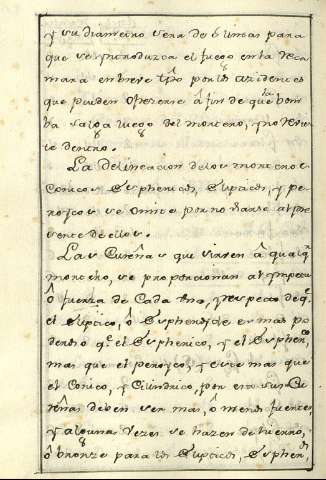 y su diametro sera de 6 lineas para
que se introduzca el fuego en la reca-
mara en breve tpô por los accidentes
que pueden ofrezerse â fin de que la bom
ba salga luego del mortero, y no rebien
te dentro.
La delineacion de los morteros
Conicos, Esphericos, Elipticos, y pe-
roycos se omite por no darse al pre
sente de ellos.
Las Cureñas que sirven â qualqr
mortero, se proporcionan al impetu
ô fuerza de Cada uno, y su peso de qe
el Eliptico, ô Espheroyde es mas po
deroso qe el Espherico, y el Espheco
mas que el peroyco, y este mas que
el Conico, y Cilindrico, por eso sus Cu
reñas deben ser mas, ô menos fuertes,
y algunas vezes se hazen de hierro,
ô bronze para los Elipticos, Espheros